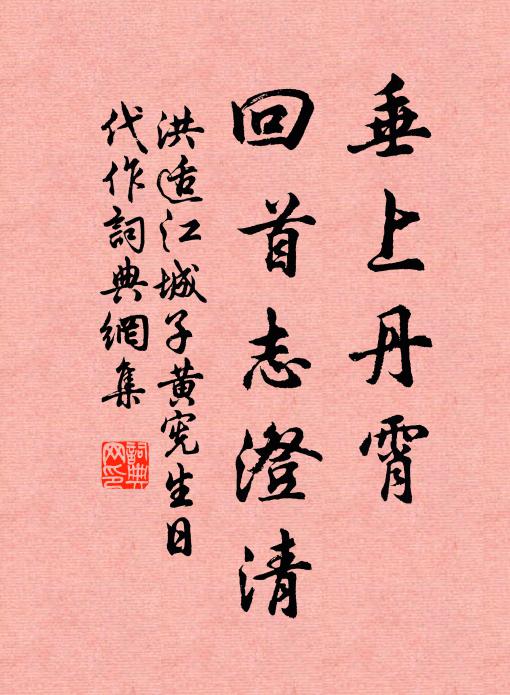 垂上丹霄
回首志澄清
洪适江城子黄宪生日
代作詞典網集
詞典網印